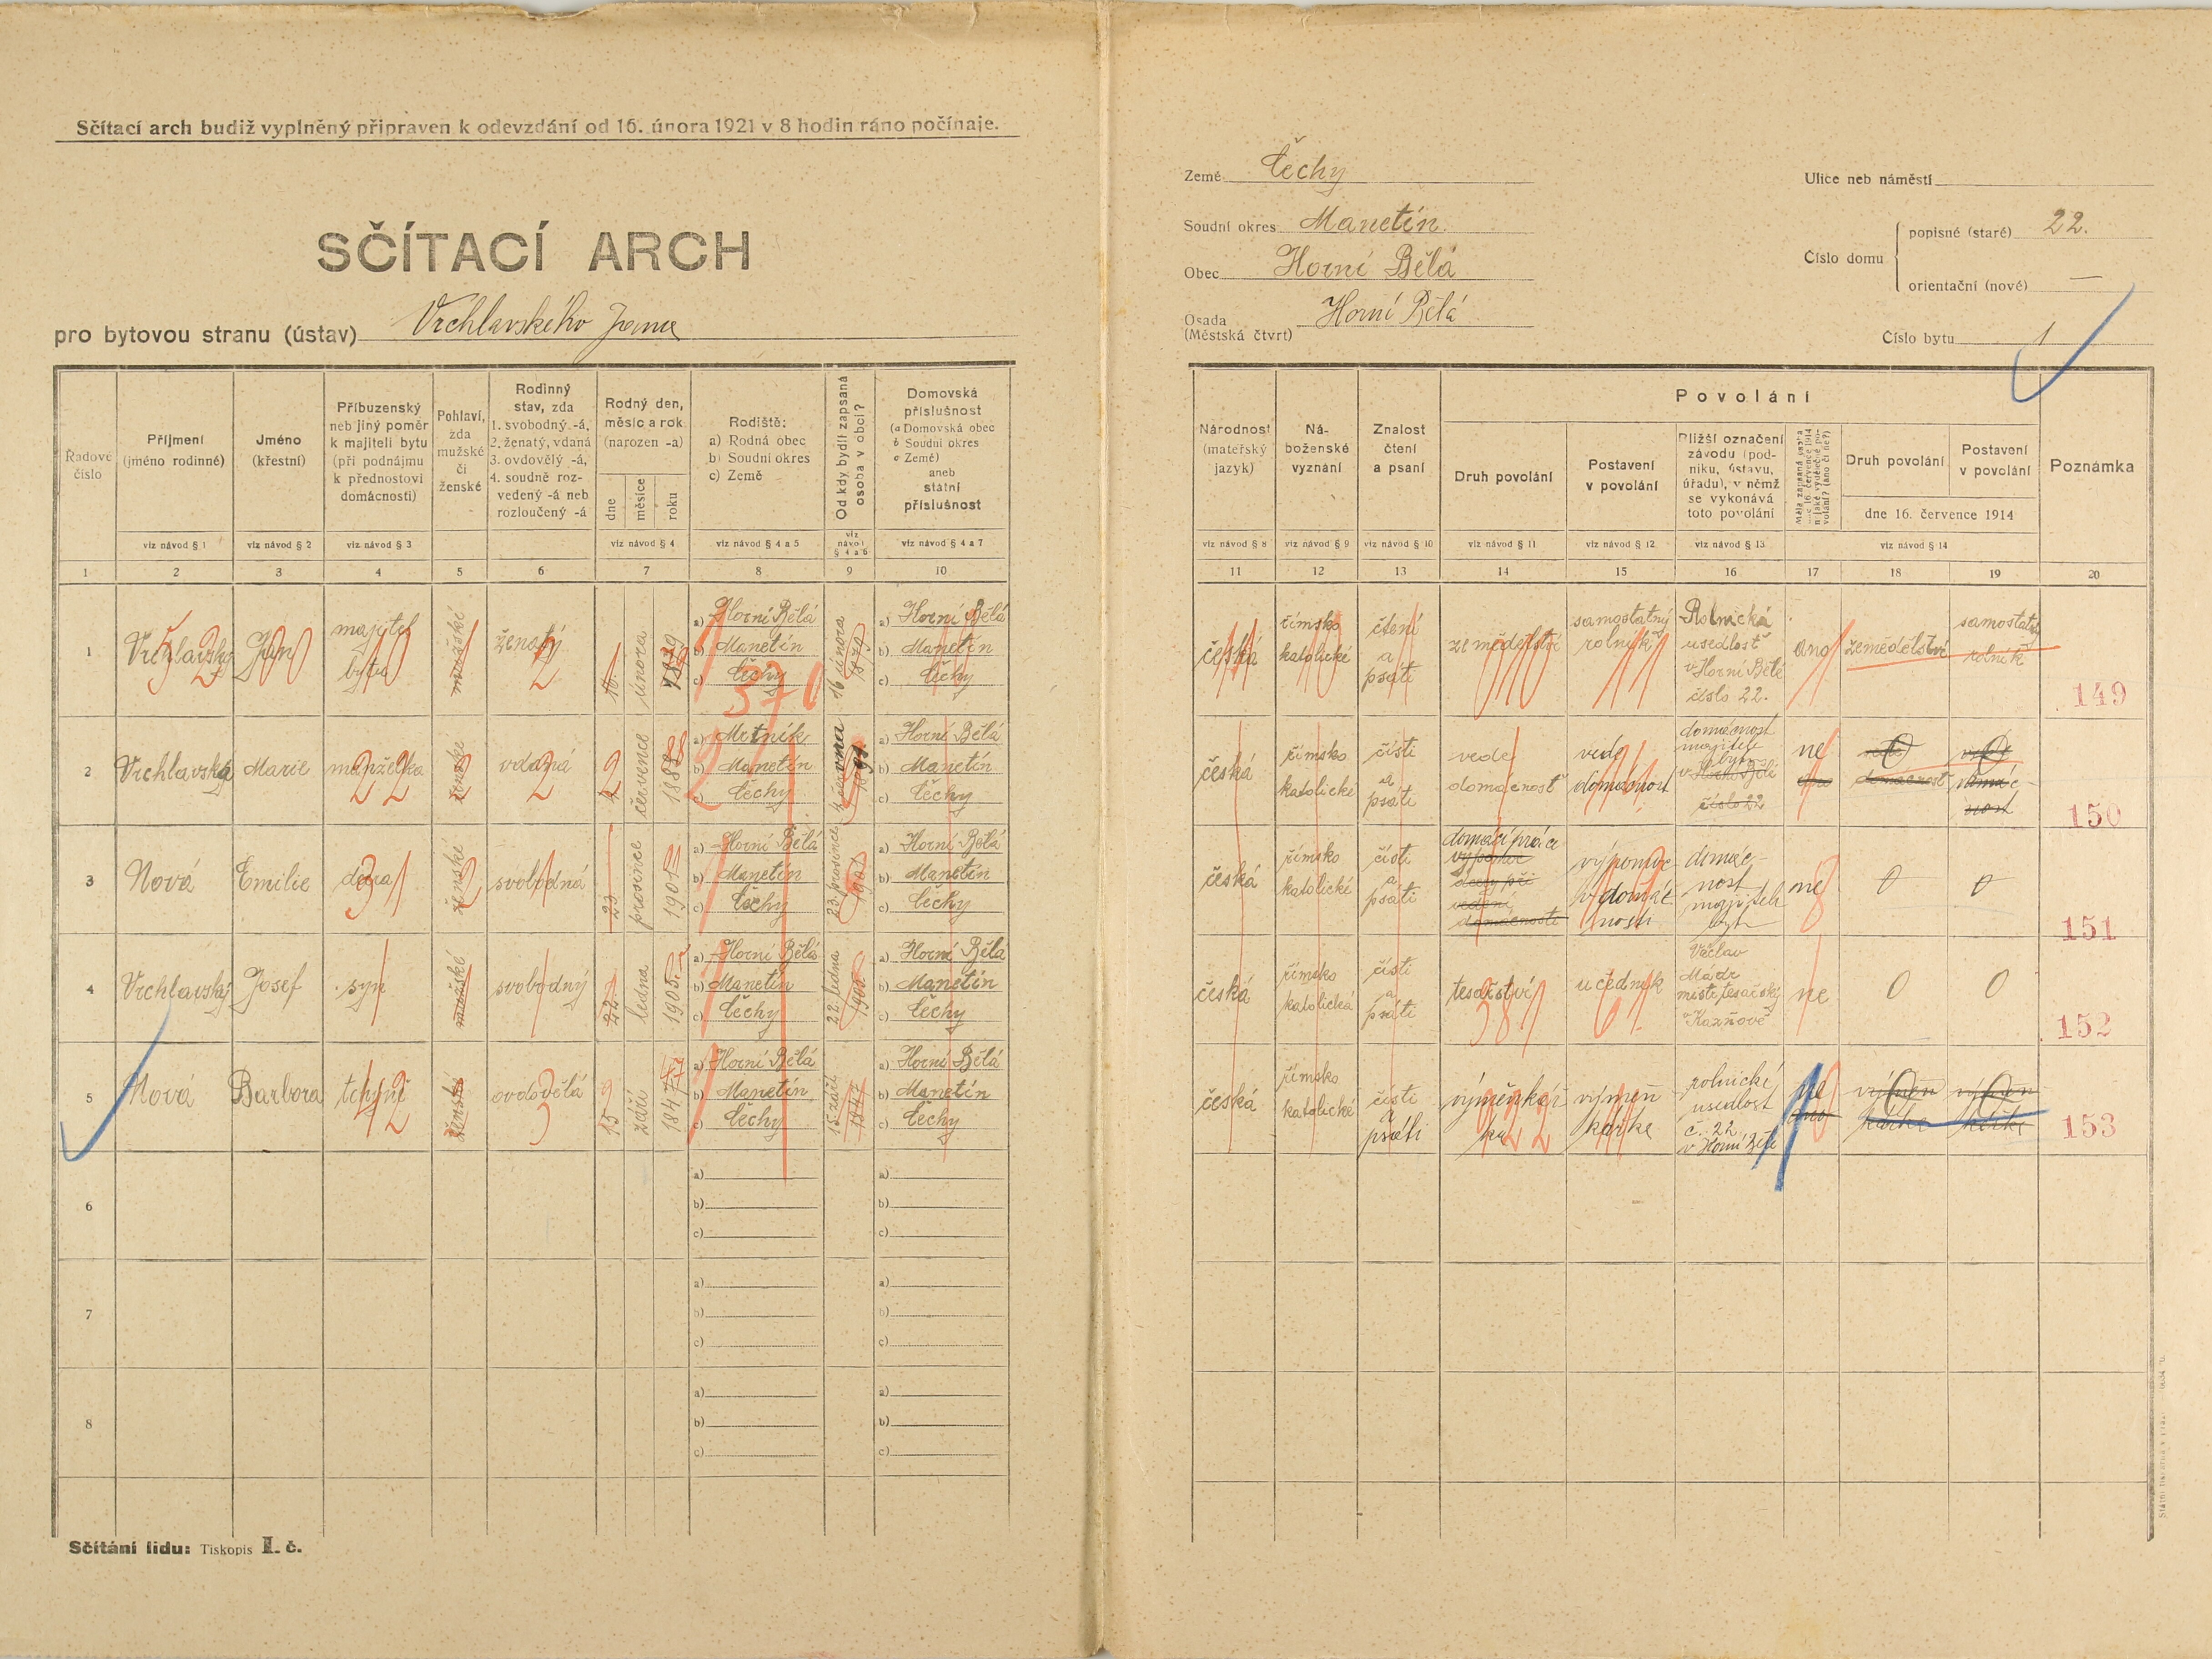 Sčítací arch budiž vyplněný připraven k odevzdání od 16. února 1921 v 8 hodin ráno počínaje.
SČÍTACÍ ARCH
pro bytovou stranu (ústav) Vrchlavského Jana
Země Čechy
Soudní okres Manetín
Obec Horní Bělá
Osada Horní Bělá
(Městská čtvrt)
Ulice neb náměstí
Číslo domu
popisné (staré) 22.
orientační (nové) —
Číslo bytu 1
Řadové číslo
Příjmení (jméno rodinné)
Jméno (křestní)
Příbuzenský neb jiný poměr k majiteli bytu (při podnájmu k přednostovi domácnosti)
Pohlaví, zda mužské či ženské
Rodinný stav, zda 1. svobodný -á, 2. ženatý, vdaná 3. ovdovělý -á, 4. soudně rozvedený -á neb rozloučený -á
Rodný den, měsíc a rok (narozen -a)
dne
měsíce
roku
Rodiště:
a) Rodná obec
b) Soudní okres
c) Země
Od kdy bydlí zapsaná osoba v obci?
Domovská příslušnost
(a Domovská obec
b Soudní okres
c Země)
aneb státní příslušnost
Národnost (mateřský jazyk)
Náboženské vyznání
Znalost čtení a psaní
Povolání
Druh povolání
Postavení v povolání
Bližší označení závodu (podniku, ústavu, úřadu), v němž se vykonává toto povolání
Druh povolání
Postavení v povolání
dne 16. července 1914
Poznámka
viz návod § 1
viz návod § 2
viz návod § 3
viz návod § 4
viz návod § 4 a 5
viz návod § 4 a 6
viz návod § 4 a 7
viz návod § 8
viz návod § 9
viz návod § 10
viz návod § 11
viz návod § 12
viz návod § 13
viz návod § 14
1 2 3 4 5 6 7 8 9 10 11 12 13 14 15 16 17 18 19 20
1
Vrchlavský
Jan
majitel bytu
mužské
ženatý
16
února
1879
a) Horní Bělá
b) Manetín
c) Čechy
16 února 1879
a) Horní Bělá
b) Manetín
c) Čechy
česká
římsko katolické
čtení a psáti
zemědělství
samostatný rolník
Rolnická usedlost v Horní Bělé číslo 22.
ano
zemědělství
samostatný rolník
149
2
Vrchlavská
Marie
manželka
ženské
vdaná
2
července
1882
a) Mrtník
b) Manetín
c) Čechy
a) Horní Bělá
b) Manetín
c) Čechy
česká
římsko katolické
čísti a psáti
vede domácnost
vede domácnost
domácnost majitele bytu
v Horní Bělé
číslo 22
ne
0
domácnost
0
150
3
Nová
Emilie
dcera
ženské
svobodná
23
prosince
1901
a) Horní Bělá
b) Manetín
c) Čechy
23. prosince 1901
a) Horní Bělá
b) Manetín
c) Čechy
česká
římsko katolické
čísti a psáti
domácí práce
dcery při
vedení
domácnosti
výpomoc v domácnosti
domácnost majitele bytu
ne
0
0
151
4
Vrchlavský
Josef
syn
mužské
svobodný
22
ledna
1905
a) Horní Bělá
b) Manetín
c) Čechy
22. ledna 1905
a) Horní Bělá
b) Manetín
c) Čechy
česká
římsko katolická
čísti a psáti
tesařství
učedník
Václav Mádr mistr tesařský v Kaznově
ne
0
0
152
5
Nová
Barbora
tchyně
ženské
ovdovělá
15
září
1847
a) Horní Bělá
b) Manetín
c) Čechy
15 září 1847
a) Horní Bělá
b) Manetín
c) Čechy
česká
římsko katolické
čísti a psáti
výměnkářka
výměnkářka
rolnické usedlost č. 22 v Horní Bělé
ne
ano
0
0
153
6
a)
b)
c)
a)
b)
c)
7
a)
b)
c)
a)
b)
c)
8
a)
b)
c)
a)
b)
c)
Sčítání lidu: Tiskopis I. č.